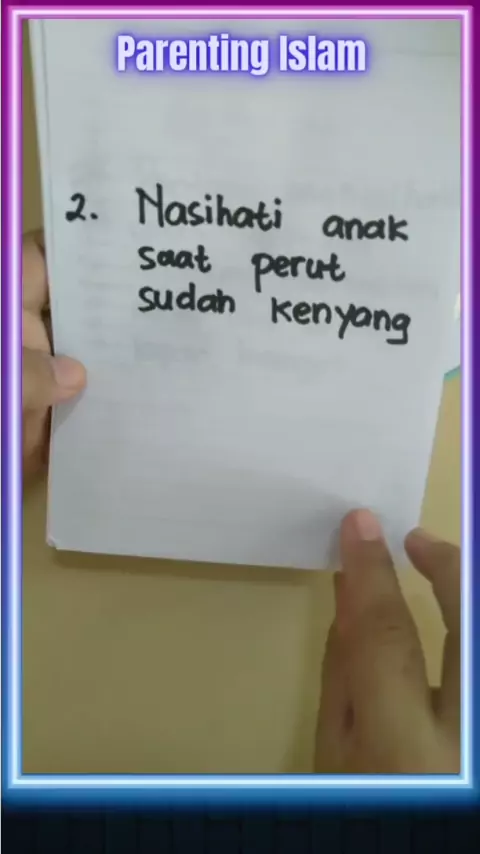 Parenting Islam
2. Nasihati anak
saat perut
sudah kenyang